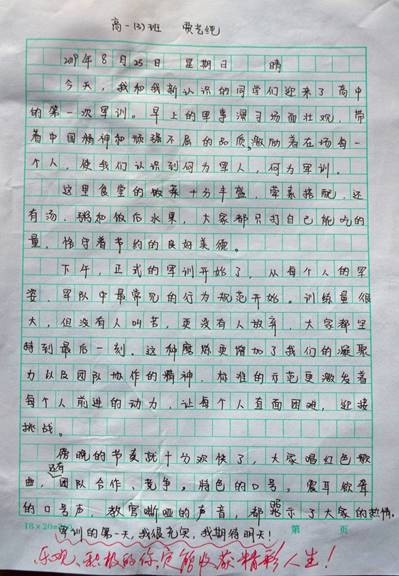 高一(3)班
2019年8月25日 星期日 晴
今天，我和我新认识的同学们迎来了高中
的第一次军训。早上的军事演习场面壮观，带
着中国精神和顽强不屈的品质，激励着在场每一
个人，使我们认识到何为军人，何为军训。
这里食堂的饭菜十分丰盛，荤素搭配，还
有汤、粥和饭后水果，大家都只打自己能吃的
量，恪守着节约的良好美德。
下午，正式的军训开始了，从每个人的军
姿，军队中最常见的行为规范开始。训练量很
大，但没有人叫苦，更没有人放弃，大家都坚
持到最后一刻。这种磨炼更增加了我们的凝聚
力以及团队协作的精神，标准的示范更激发着
每个人前进的动力，让每个人直面困难，迎接
挑战。
傍晚的节奏就十分欢快了，大家唱红色歌
曲，还有团队合作、竞争。特色的口号。震耳欲聋
的口号声，教官嘶哑的声音，都昭示了大家的热情。
18×20=
军训的第一天，我很充实，我期待明天！
第 页
乐观、积极的你定能收获精彩人生！